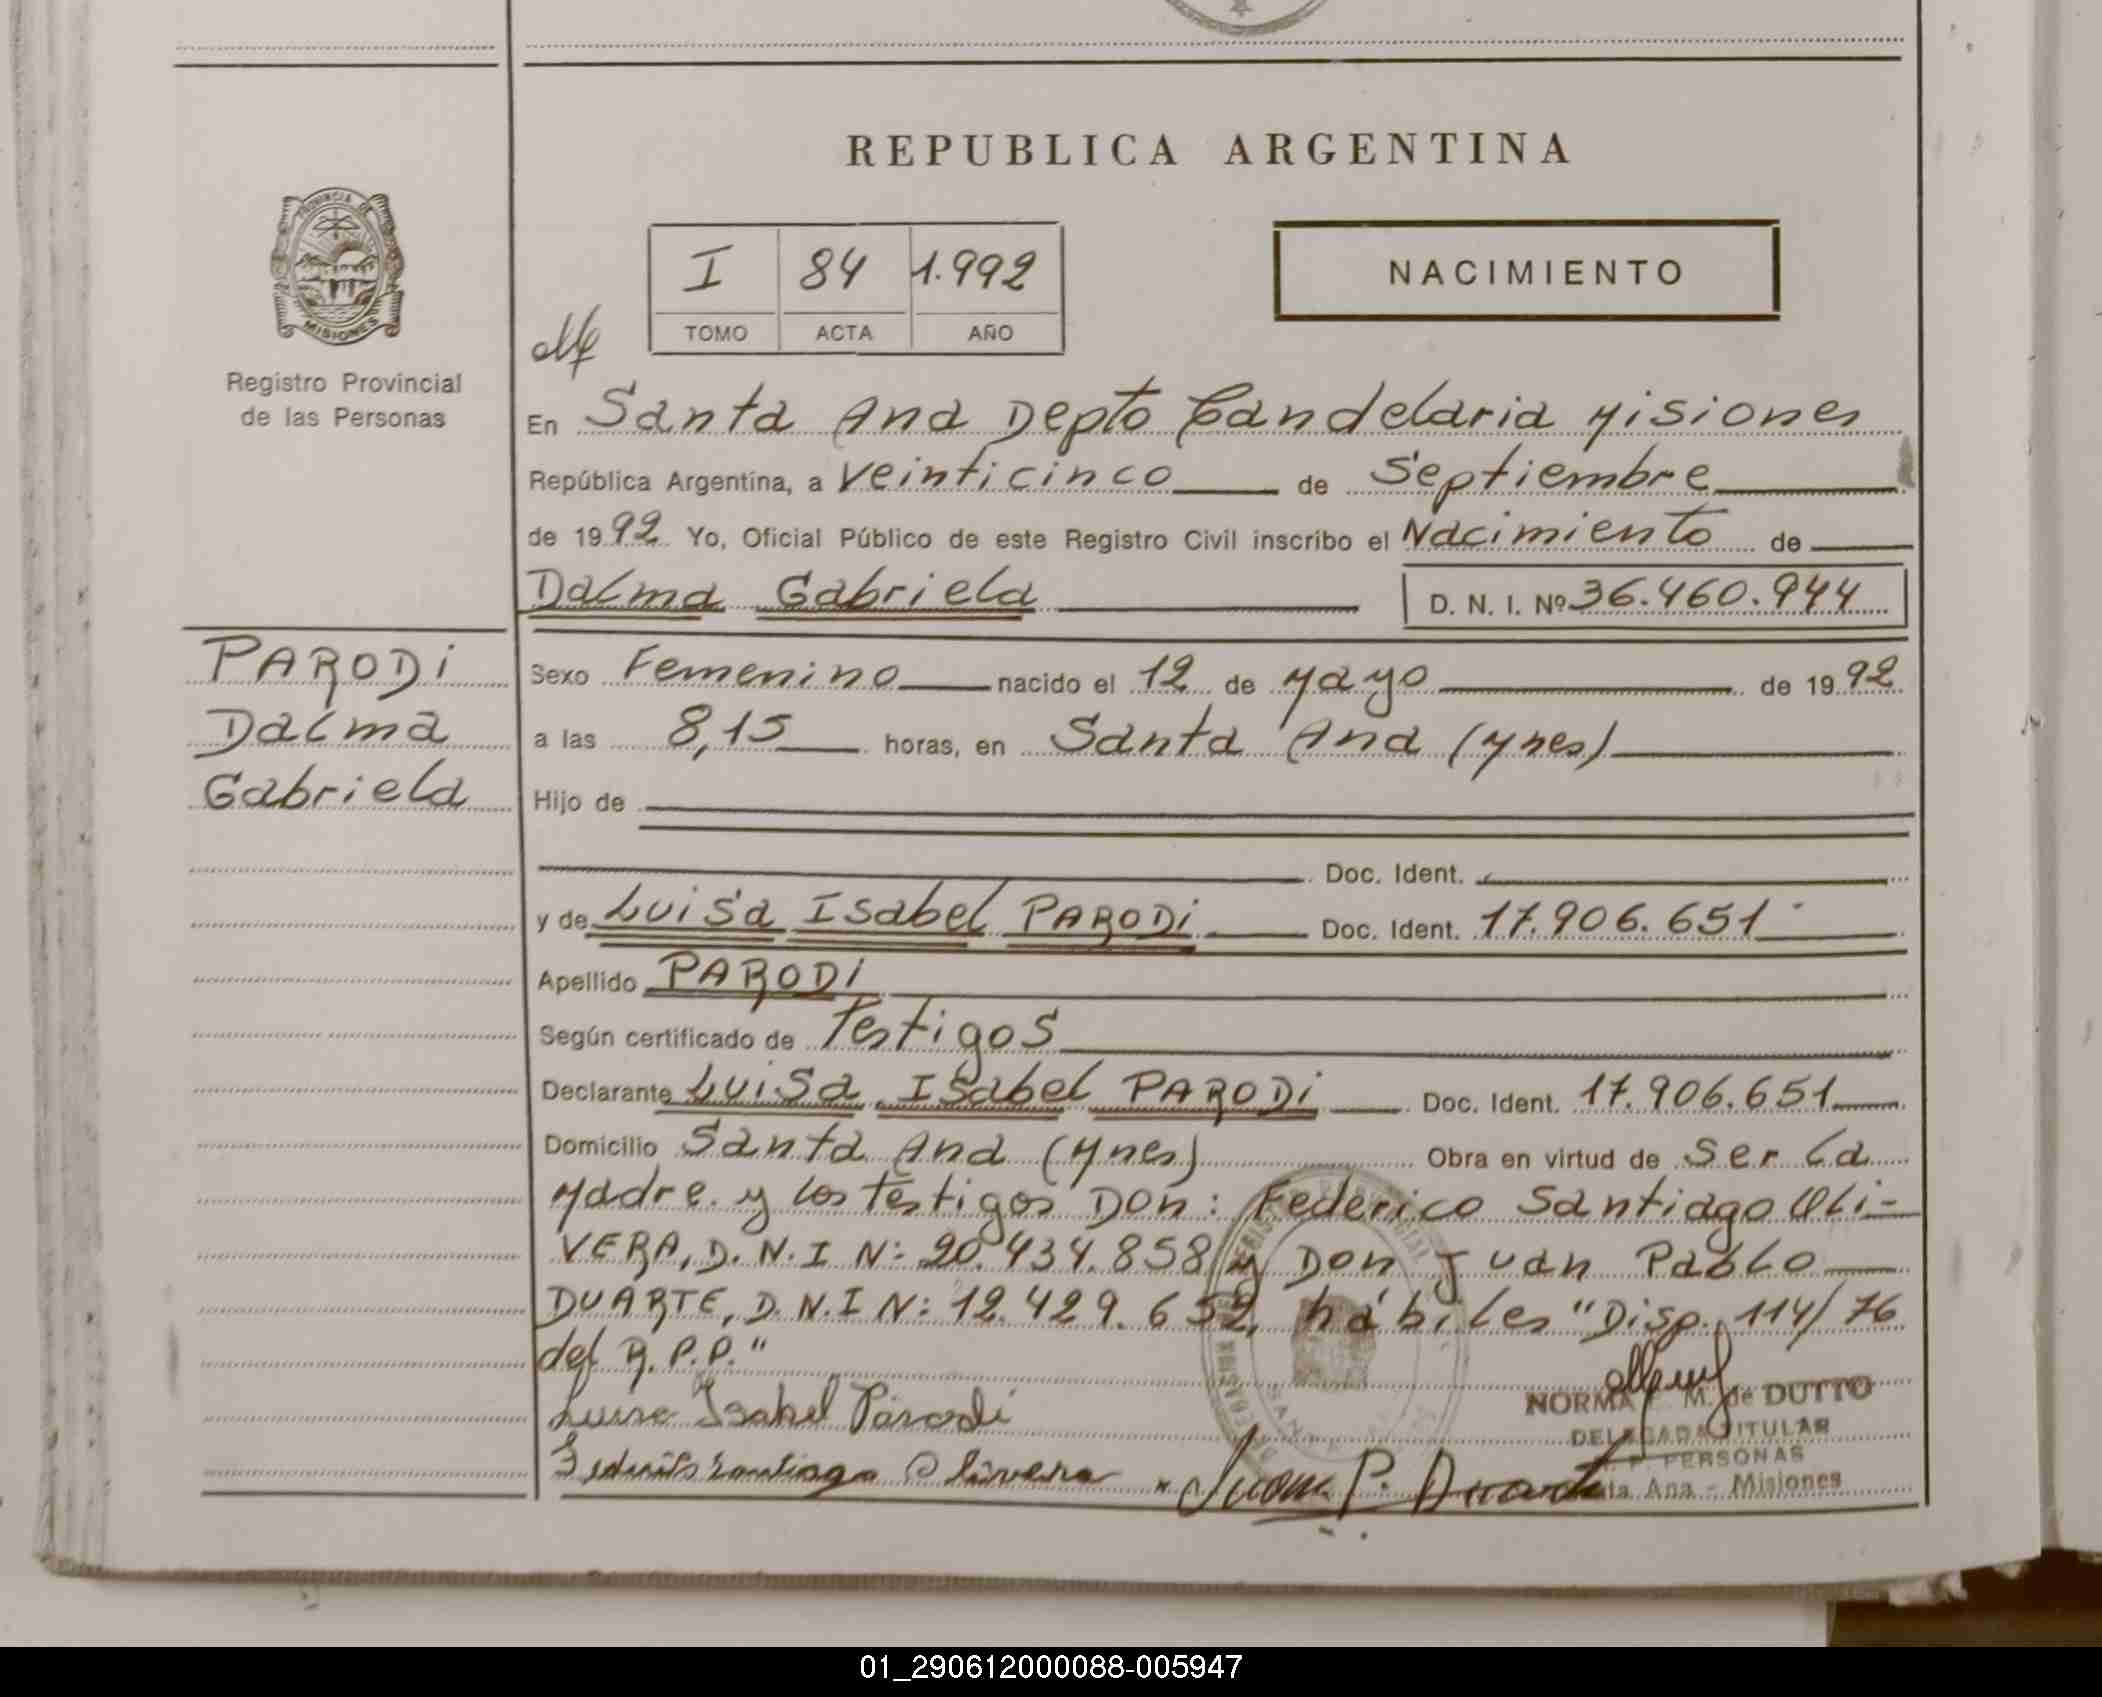 REPUBLICA ARGENTINA
PROVINCIA DE
MISIONES
Registro Provincial
de las Personas
I 84 1.992
TOMO ACTA AÑO
NACIMIENTO
En Santa Ana Depto Candelaria Misiones
República Argentina, a Veinticinco de Septiembre
de 1992 Yo, Oficial Público de este Registro Civil inscribo el Nacimiento de
Dalma Gabriela D. N. I. Nº 36.460.944
PARODI
Dalma
Gabriela
Sexo Femenino nacido el 12 de Mayo de 1992
a las 8,15 horas, en Santa Ana (Mnes)
Hijo de
Doc. Ident.
y de Luisa Isabel PARODI Doc. Ident. 17.906.651
Apellido PARODI
Según certificado de Testigos
Declarante Luisa Isabel PARODI Doc. Ident. 17.906.651
Domicilio Santa Ana (Mnes) Obra en virtud de Ser la
Madre y los testigos Don: Federico Santiago Oli-
VERA, D.N.I N: 20.434.858 y Don Juan Pablo
DUARTE, D.N.I N: 12.429.652, hábiles "Disp. 114/76
del R.P.P."
Luisa Isabel Parodi
Federico Santiago Olivera Juan P. Duarte
NORMA M. de DUTTO
DELEGADA TITULAR
PERSONAS
Ana - Misiones
01_290612000088-005947